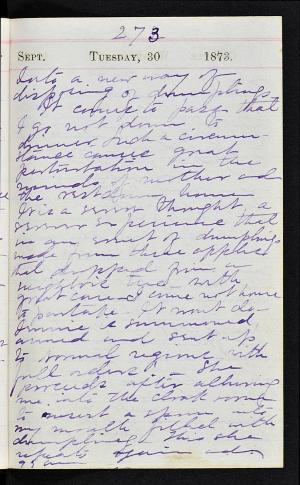 273
SEPT. TUESDAY, 30 1873.
Into a new way of
disposing of dumplings.
It came to pass that
I go not down to
dinner. Such a circum-
stance causes great
perturbation in the
minds of mother and
the rest down home
It is a serious thought, a
serious experience that
no one smell of dumplings
made from these apples
that dropped from
neighbors tree with
great care I came not home
to partake. It wont do
Jimmie is summoned,
armed and sent up
to normal regions with
full orders. She
proceeds after alluring
me into the cloak room
to insert a spoon into
my mouth filled with
dumpling. This she
repeats again and